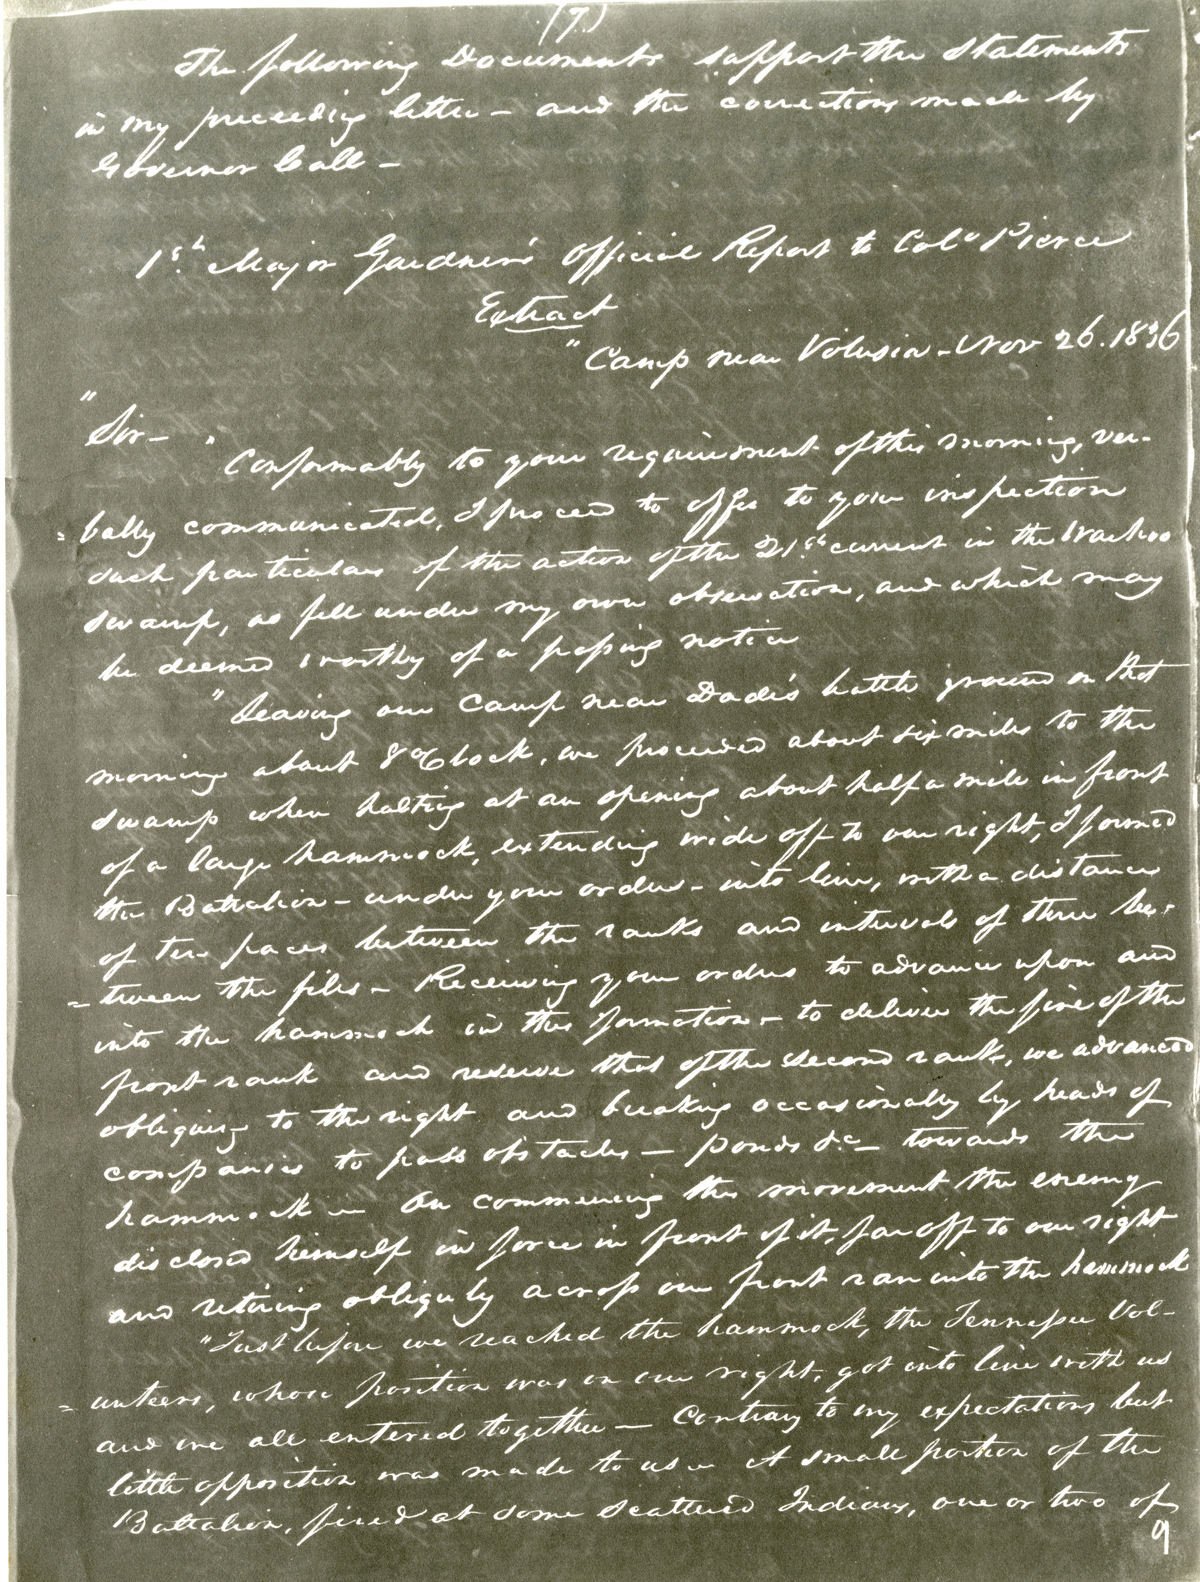 (7.)
The following Documents support the Statements
in my preceeding letter – and the corrections made by
Governor Call –
1st Major Gardner's Official Report to Colo Pierce
Extract
"Camp near Volusia – Nov 26. 1836
"Sir – "
Conformably to your requirement of this morning, ver-
= bally communicated, I proceed to offer to your inspection
such particulars of the action of the 21st current in the Wachoo
swamp, as fell under my own observation, and which may
be deemed worthy of a passing notice
"Leaving our Camp near Dade's battle ground on that
morning about 8 O'Clock, we proceeded about six miles to the
swamp when halting at an opening about half a mile in front
of a large hammock, extending wide off to our right, I formed
the Battalion – under your orders – into line, with a distance
of ten paces between the ranks and intervals of three be-
= tween the files – Receiving your orders to advance upon and
into the hammock in this formation – to deliver the fire of the
front rank and reserve that of the second rank, we advanced
obliquing to the right and breaking occasionally by heads of
companies to pass obstacles – ponds &c – towards the
hammock – On commencing this movement the enemy
disclosed himself in force in front of it, far off to our right
and retiring obliquely across our front ran into the hammock
"Just before we reached the hammock, the Tennessee Vol-
= unteers, whose position was on our right, got into line with us
and we all entered together – Contrary to my expectations but
little opposition was made to us – A small portion of the
Battalion, fired at some scattered Indians, one or two of
9